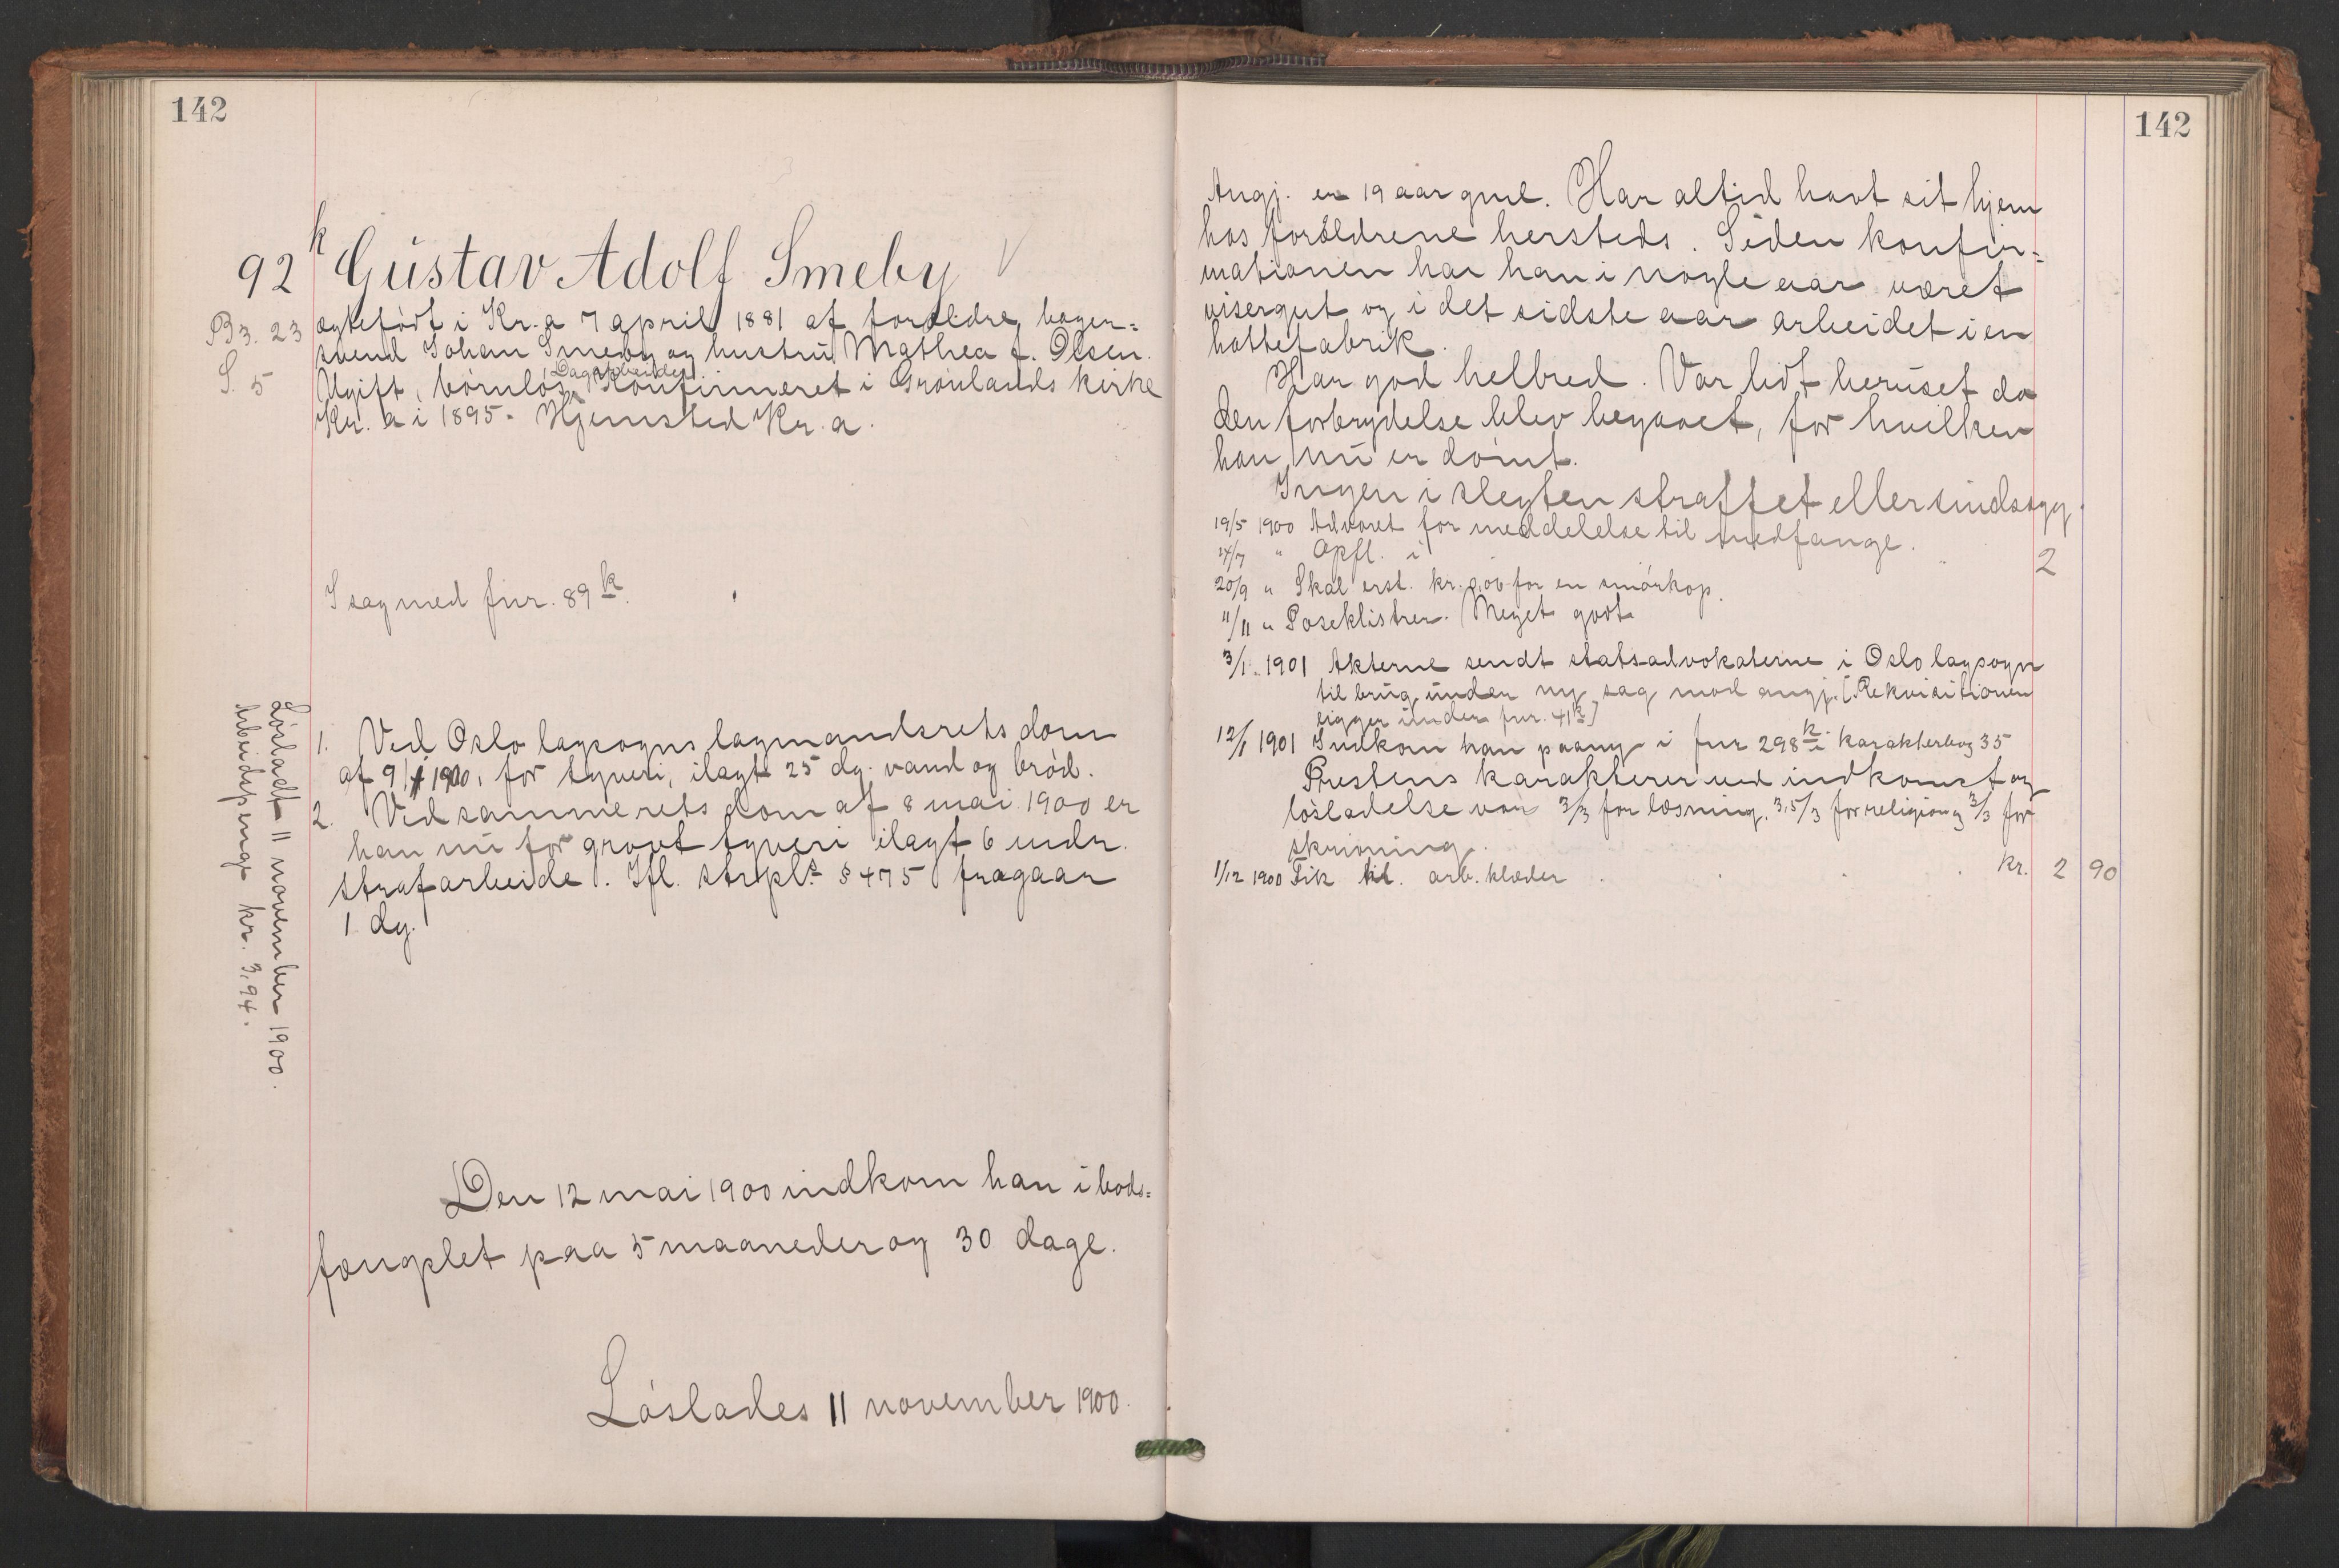 142
92 k Gustav Adolf Smeby
B3. 23
S. 5
ægtefødt i Kr.a 7 april 1881 af forældre, bager=
svend Johan Smeby og hustru Mathea f. Olsen.
Dagarbeider.
Ugift, børnløs, Konfirmeret i Grønlands kirke
Kr. a i 1895. Hjemsted Kr. a.
I sag med fnr. 89 k.
Løsladt 11 november 1900.
Arbeidspenge kr. 3,94.
1. Ved Oslo lagsogns lagmandsrets dom
af 9/1 1900, for tyveri, ilagt 25 dg. vand og brød.
2. Ved samme rets dom af 8 mai 1900 er
han nu for grovt tyveri ilagt 6 mdr.
strafarbeide. Ifl. strpl. § 475 fragaar
1 dg.
Den 12 mai 1900 indkom han i bods=
fængslet paa 5 maaneder og 30 dage.
Løslades 11 november 1900.
142
Angj. er 19 aar gml. Har altid havt sit hjem
hos forældrene hersteds. Siden konfir=
mationen har han i nogle aar været
visergut og i det sidste aar arbeidet i en
hattefabrik.
Har god helbred. Var lidt beruset da
den forbrydelse blev begaaet, for hvilken
han nu er dømt.
Ingen i slegten straffet eller sindssyg.
19/5 1900 Advaret for meddelelse til medfange.
24/7 " Opfl. i " 2
20/9 " Skal erst. kr. 0,06 for en smørkop.
11/11 " Poseklistrer. Meget godt
3/1. 1901 Akterne sendt statsadvokaterne i Oslo lagsogn
til brug under ny sag mod angj. [Rekvisitionen
ligger under fnr. 41 k]
12/1 1901 Indkom han paany i fnr 298 k i karakterbog 35
Prestens karakterer ved indkomst og
løsladelse var 3/3 for læsning, 3,5/3 for religion og 3/3 for
skrivning.
1/12 1900 Fik til. arb. klæder . . . kr. 2 90